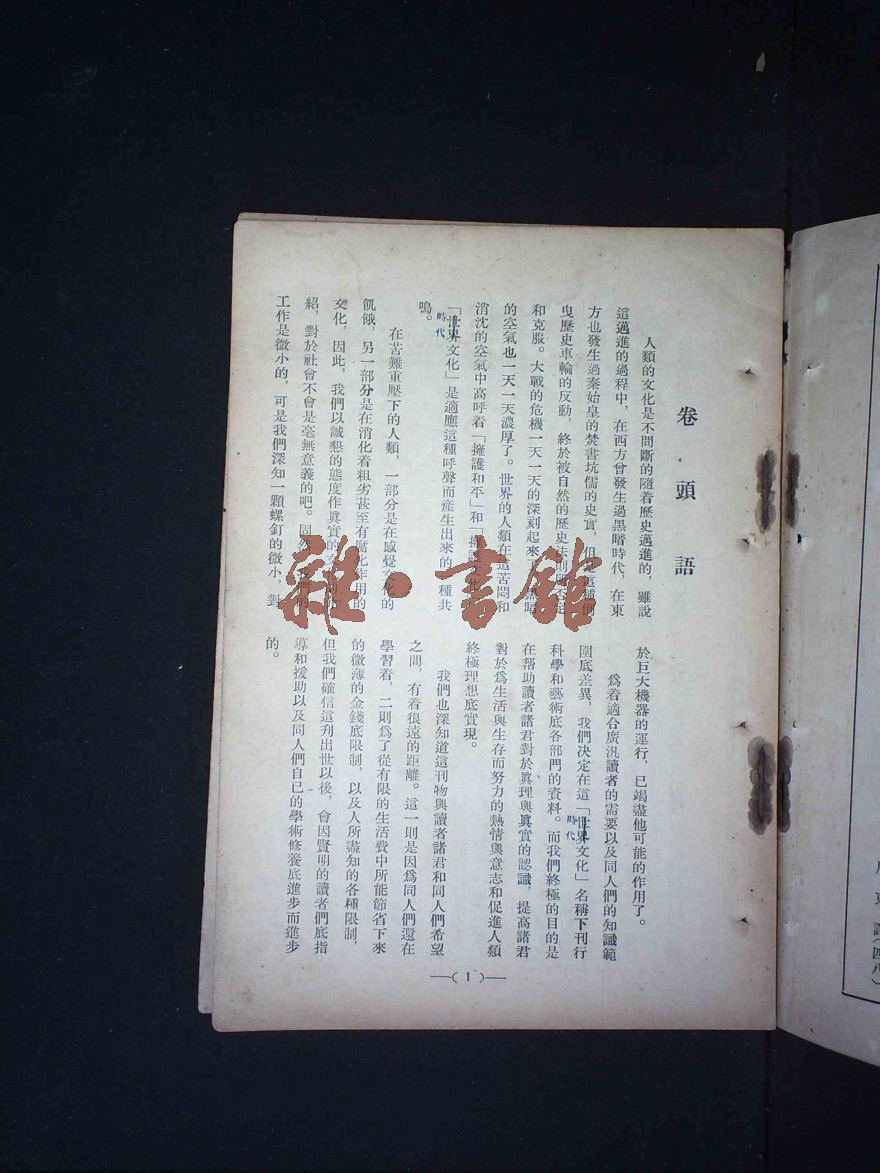 卷頭語
人類的文化是不間斷的隨着歷史邁進的，雖說
這邁進的過程中，在西方曾發生過黑暗時代，在東
方也發生過秦始皇的焚書坑儒的史實，但是這種倒
曳歷史車輪的反動，終於被自然的歷史法則所否定
和克服。大戰的危機一天一天的深刻起來，黑暗
的空氣也一天一天濃厚了。世界的人類在這苦悶和
消沈的空氣中高呼着「擁護和平」和「擁護
「世界文化」是適應這種呼聲而產生出來的一種共
時代
鳴。
在苦難重壓下的人類，一部分是在感覺文化的
飢餓，另一部分是在消化着粗劣甚至有腐化作用的
文化，因此，我們以誠懇的態度作眞實的文化的介
紹，對於社會不會是毫無意義的吧。固然，我們的
工作是微小的，可是我們深知一顆螺釘的微小，對
於巨大機器的運行，已竭盡他可能的作用了。
爲着適合廣汎讀者的需要以及同人們的知識範
圍底差異，我們決定在這「世界文化」名稱下刊行
時代
科學和藝術底各部門的資料。而我們終極的目的是
在幫助讀者諸君對於眞理與眞實的認識，提高諸君
對於爲生活與生存而努力的熱情與意志和促進人類
終極理想底實現。
我們也深知道這刊物與讀者諸君和同人們希望
之間，有着很遠的距離。這一則是因爲同人們還在
學習着，二則爲了從有限的生活費中所能節省下來
的微薄的金錢底限制，以及人所盡知的各種限制，
但我們確信這刋出世以後，會因賢明的讀者們底指
導和援助以及同人們自己的學術修養底進步而進步
的。
—(1)—
雜·書館
譯(四八)